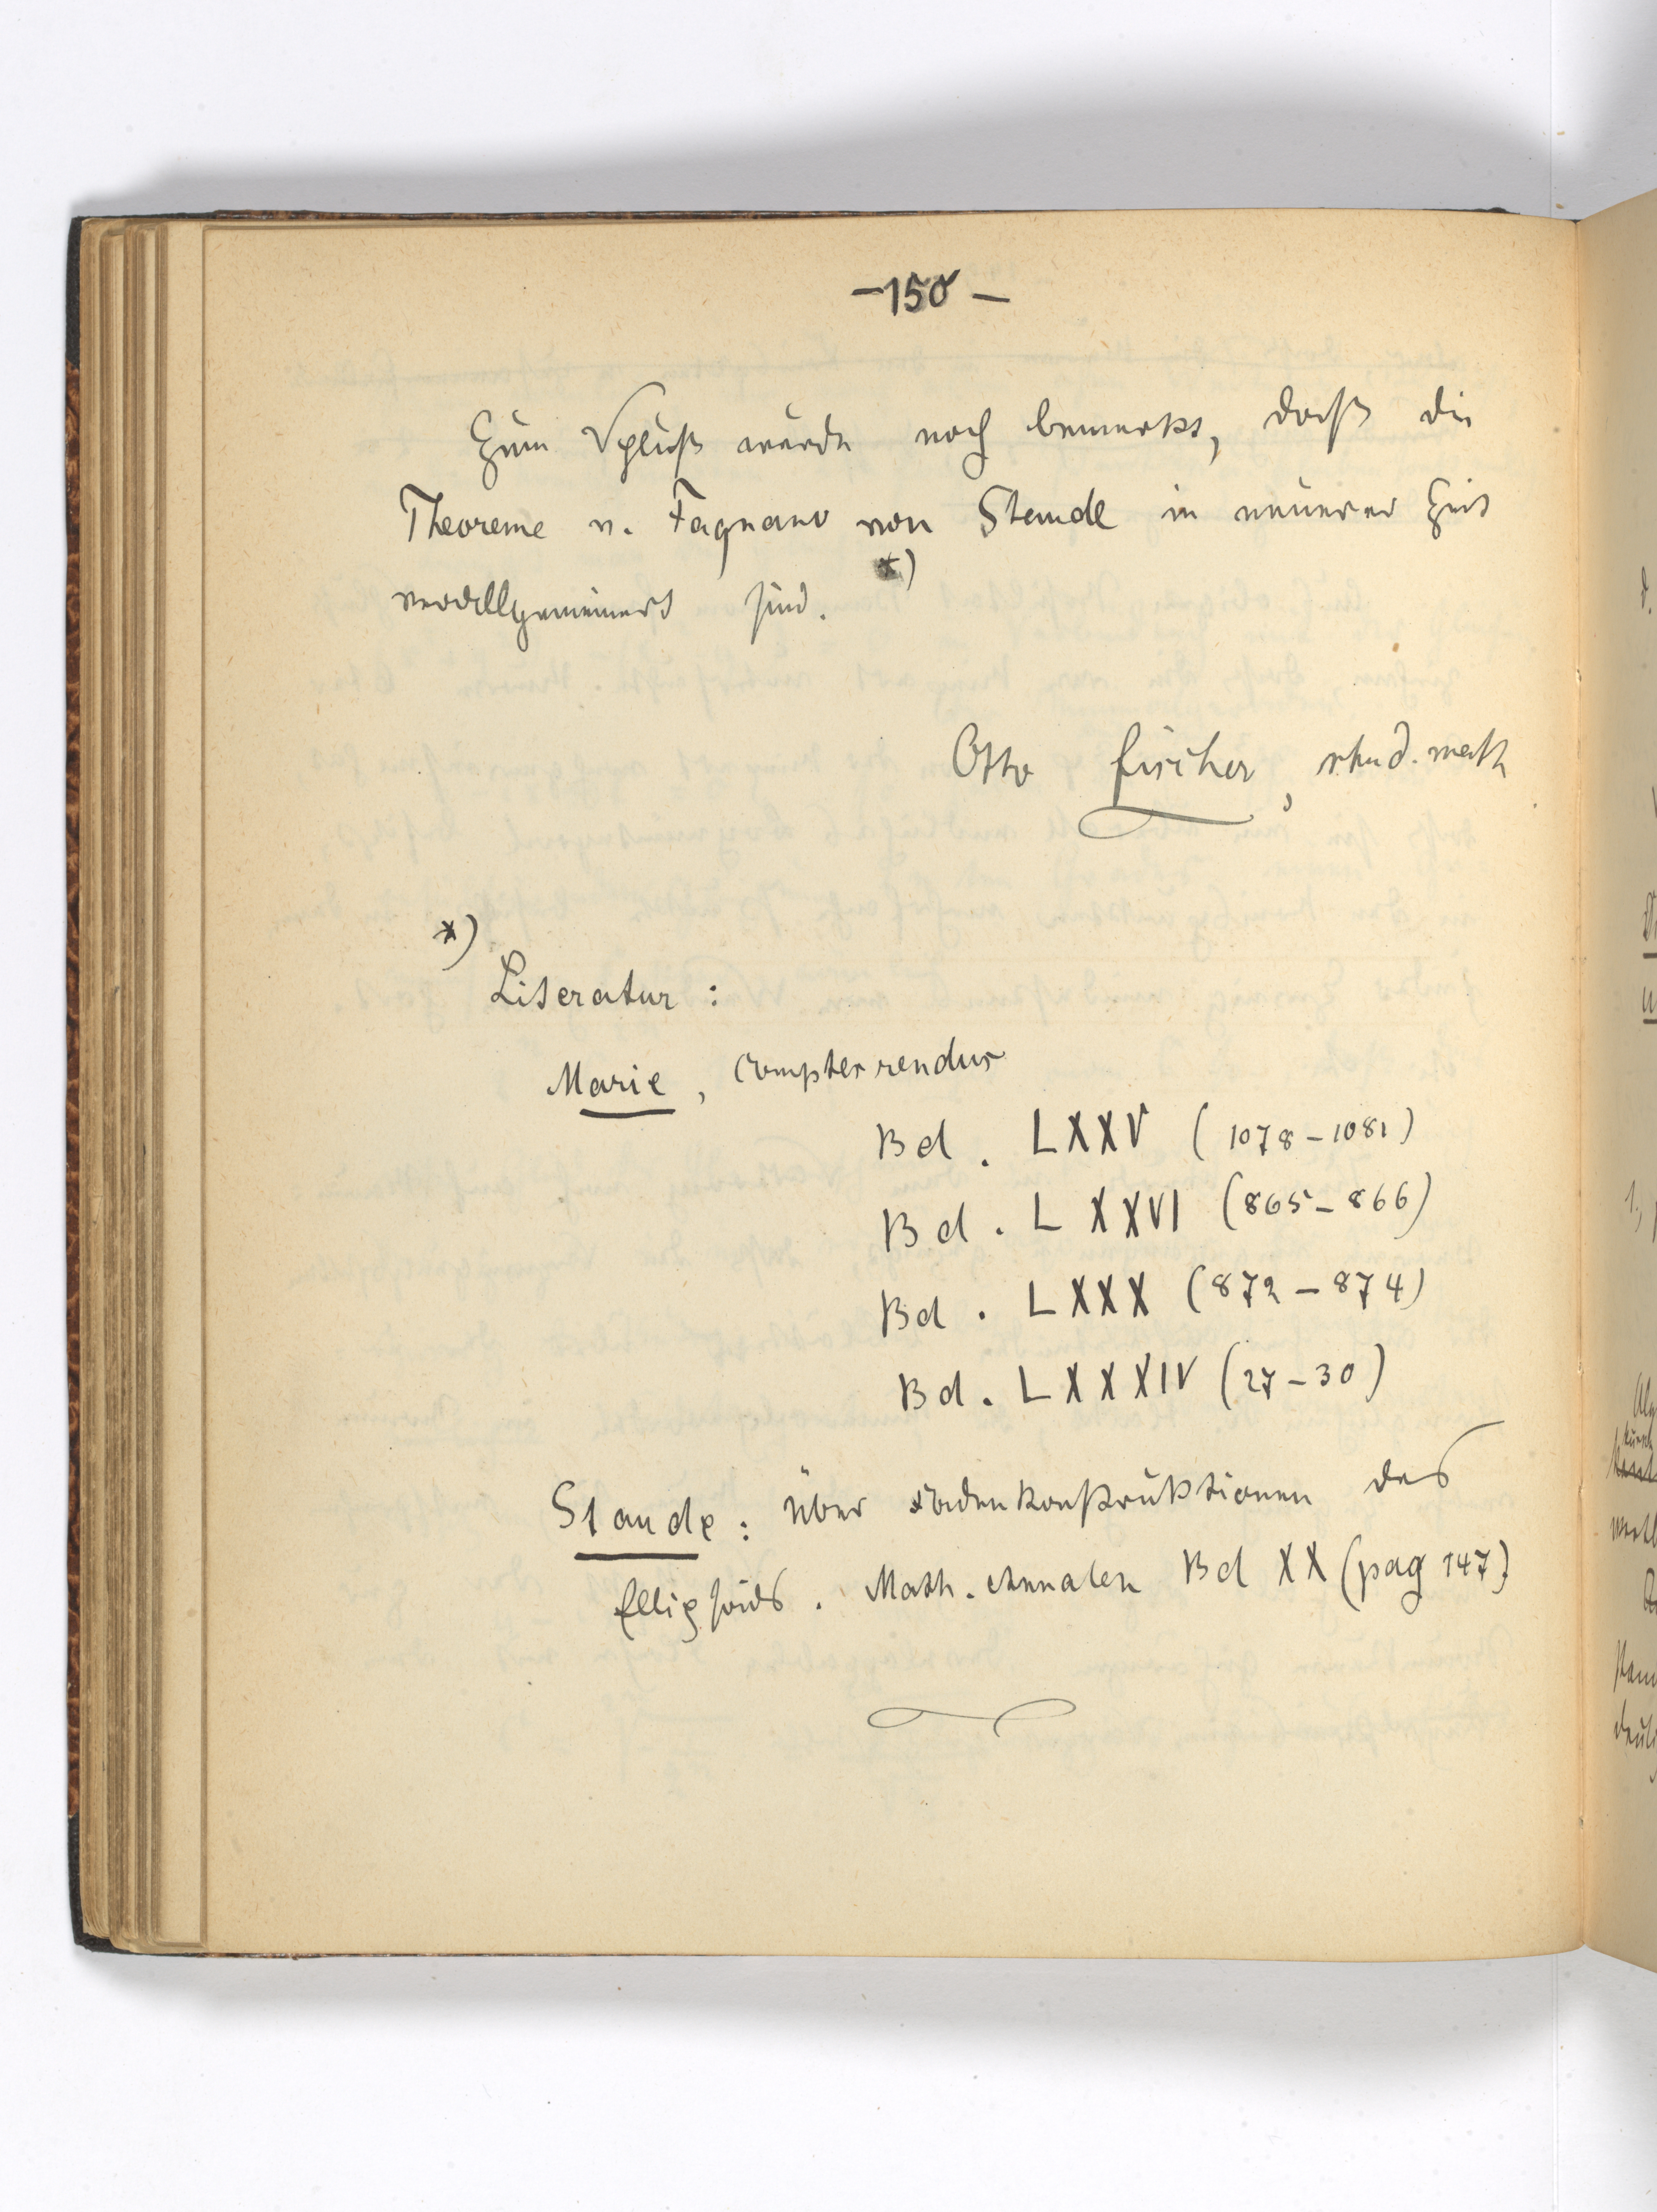 -150-
Zum Schluß wurde noch bemerkt, daß die
Theoreme v. Fagnano von Staude in neuerer Zeit
verallgemeinert sind. *)
Otto Fischer, stud. math
*)
Literatur:
Marie, Comptes rendus
Bd. LXXV (1078-1081)
Bd. LXXVI (865-866)
Bd. LXXX (872-874)
Bd. LXXXIV (27-30)
Staude: über Fadenkonstruktionen des
Ellipsoids. Math. Annalen Bd XX (pag 147)